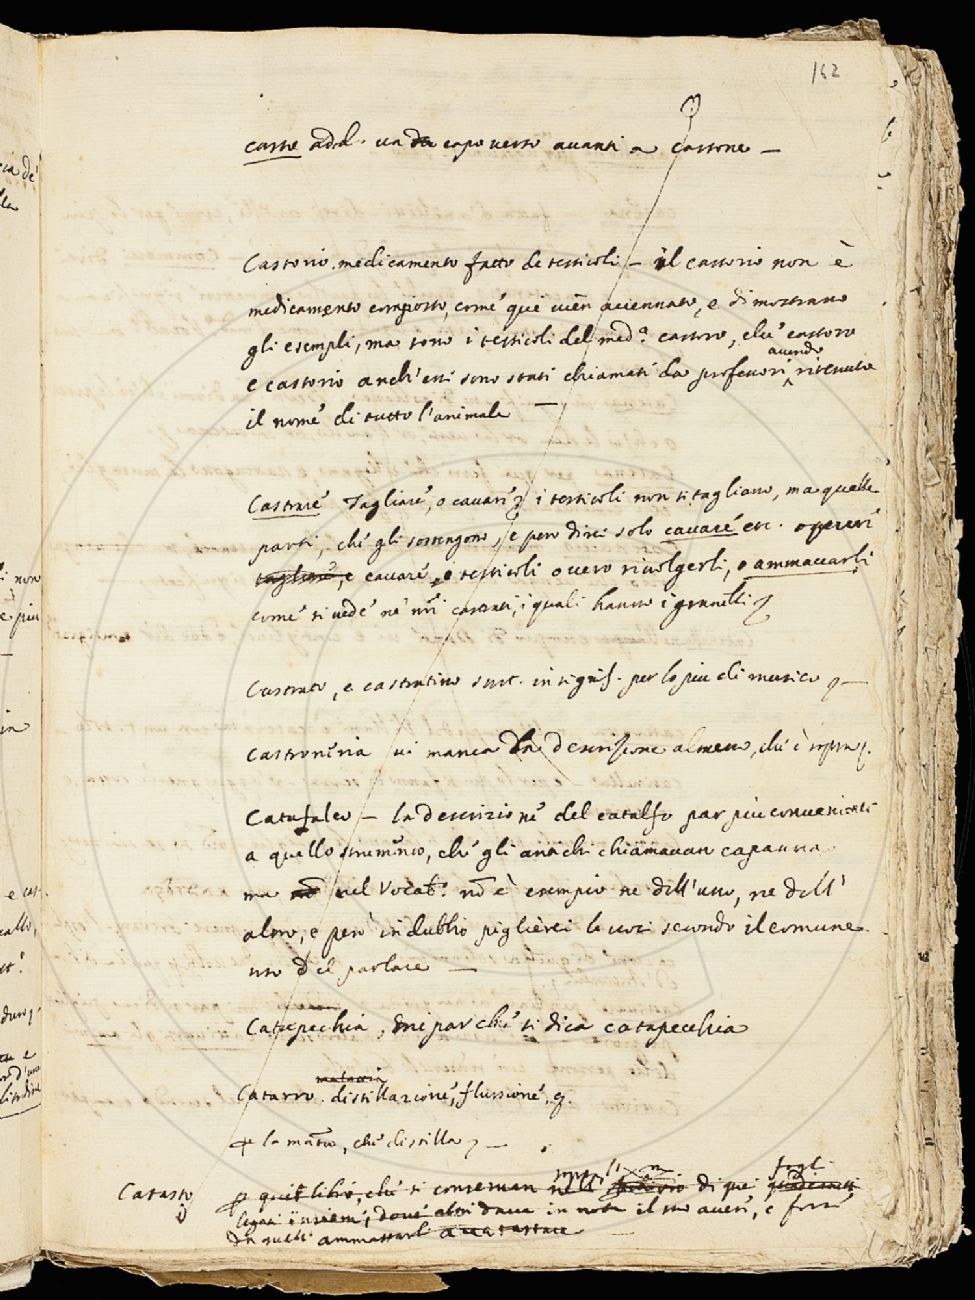 162
casso add. va da capo verso avanti a Cassone —
Castorio. medicamento fatto de testicoli — il castorio non è
medicamento composto, come qui vien accennato, e dimostrano
gli esempli, ma sono i testicoli del med.º castoro, che castoro
e castorio anch'essi sono stati chiamati da professori avendo ritenuto
il nome di tutto l'animale —
Castrare Tagliare, o cavare i testicoli non si tagliano, ma quelle
parti, che gli sostengono, e però direi solo cavare etc. opererei
tagliare, e cavare, i testicoli overo rivolgerli, o ammaccarli
come si vede ne nri castrati, i quali hanno i granelli
Castrato, e castratino sust. in signif. per lo più di musico —
Castroneria vi manca la descrizione almeno, che è sopra.
Catafalco — la descrizione del catalfo par più conveniente
a quello strumento, che gli antichi chiamavan capanna
ma nel Vocab. nō è esempio ne dell'uno, ne dell'
altro, e però in dubbio piglierei le voci secondo il comune
uso del parlare —
Catapechia, mi par che si dica catapecchia
materia
Catarro. distillazione, flussione, e
la materia, che distilla —
Catasto quel libro, che si conservan di que fogli
legati insieme, dove altri dava in nota il suo avere, e
da quelli ammassarli accatastare